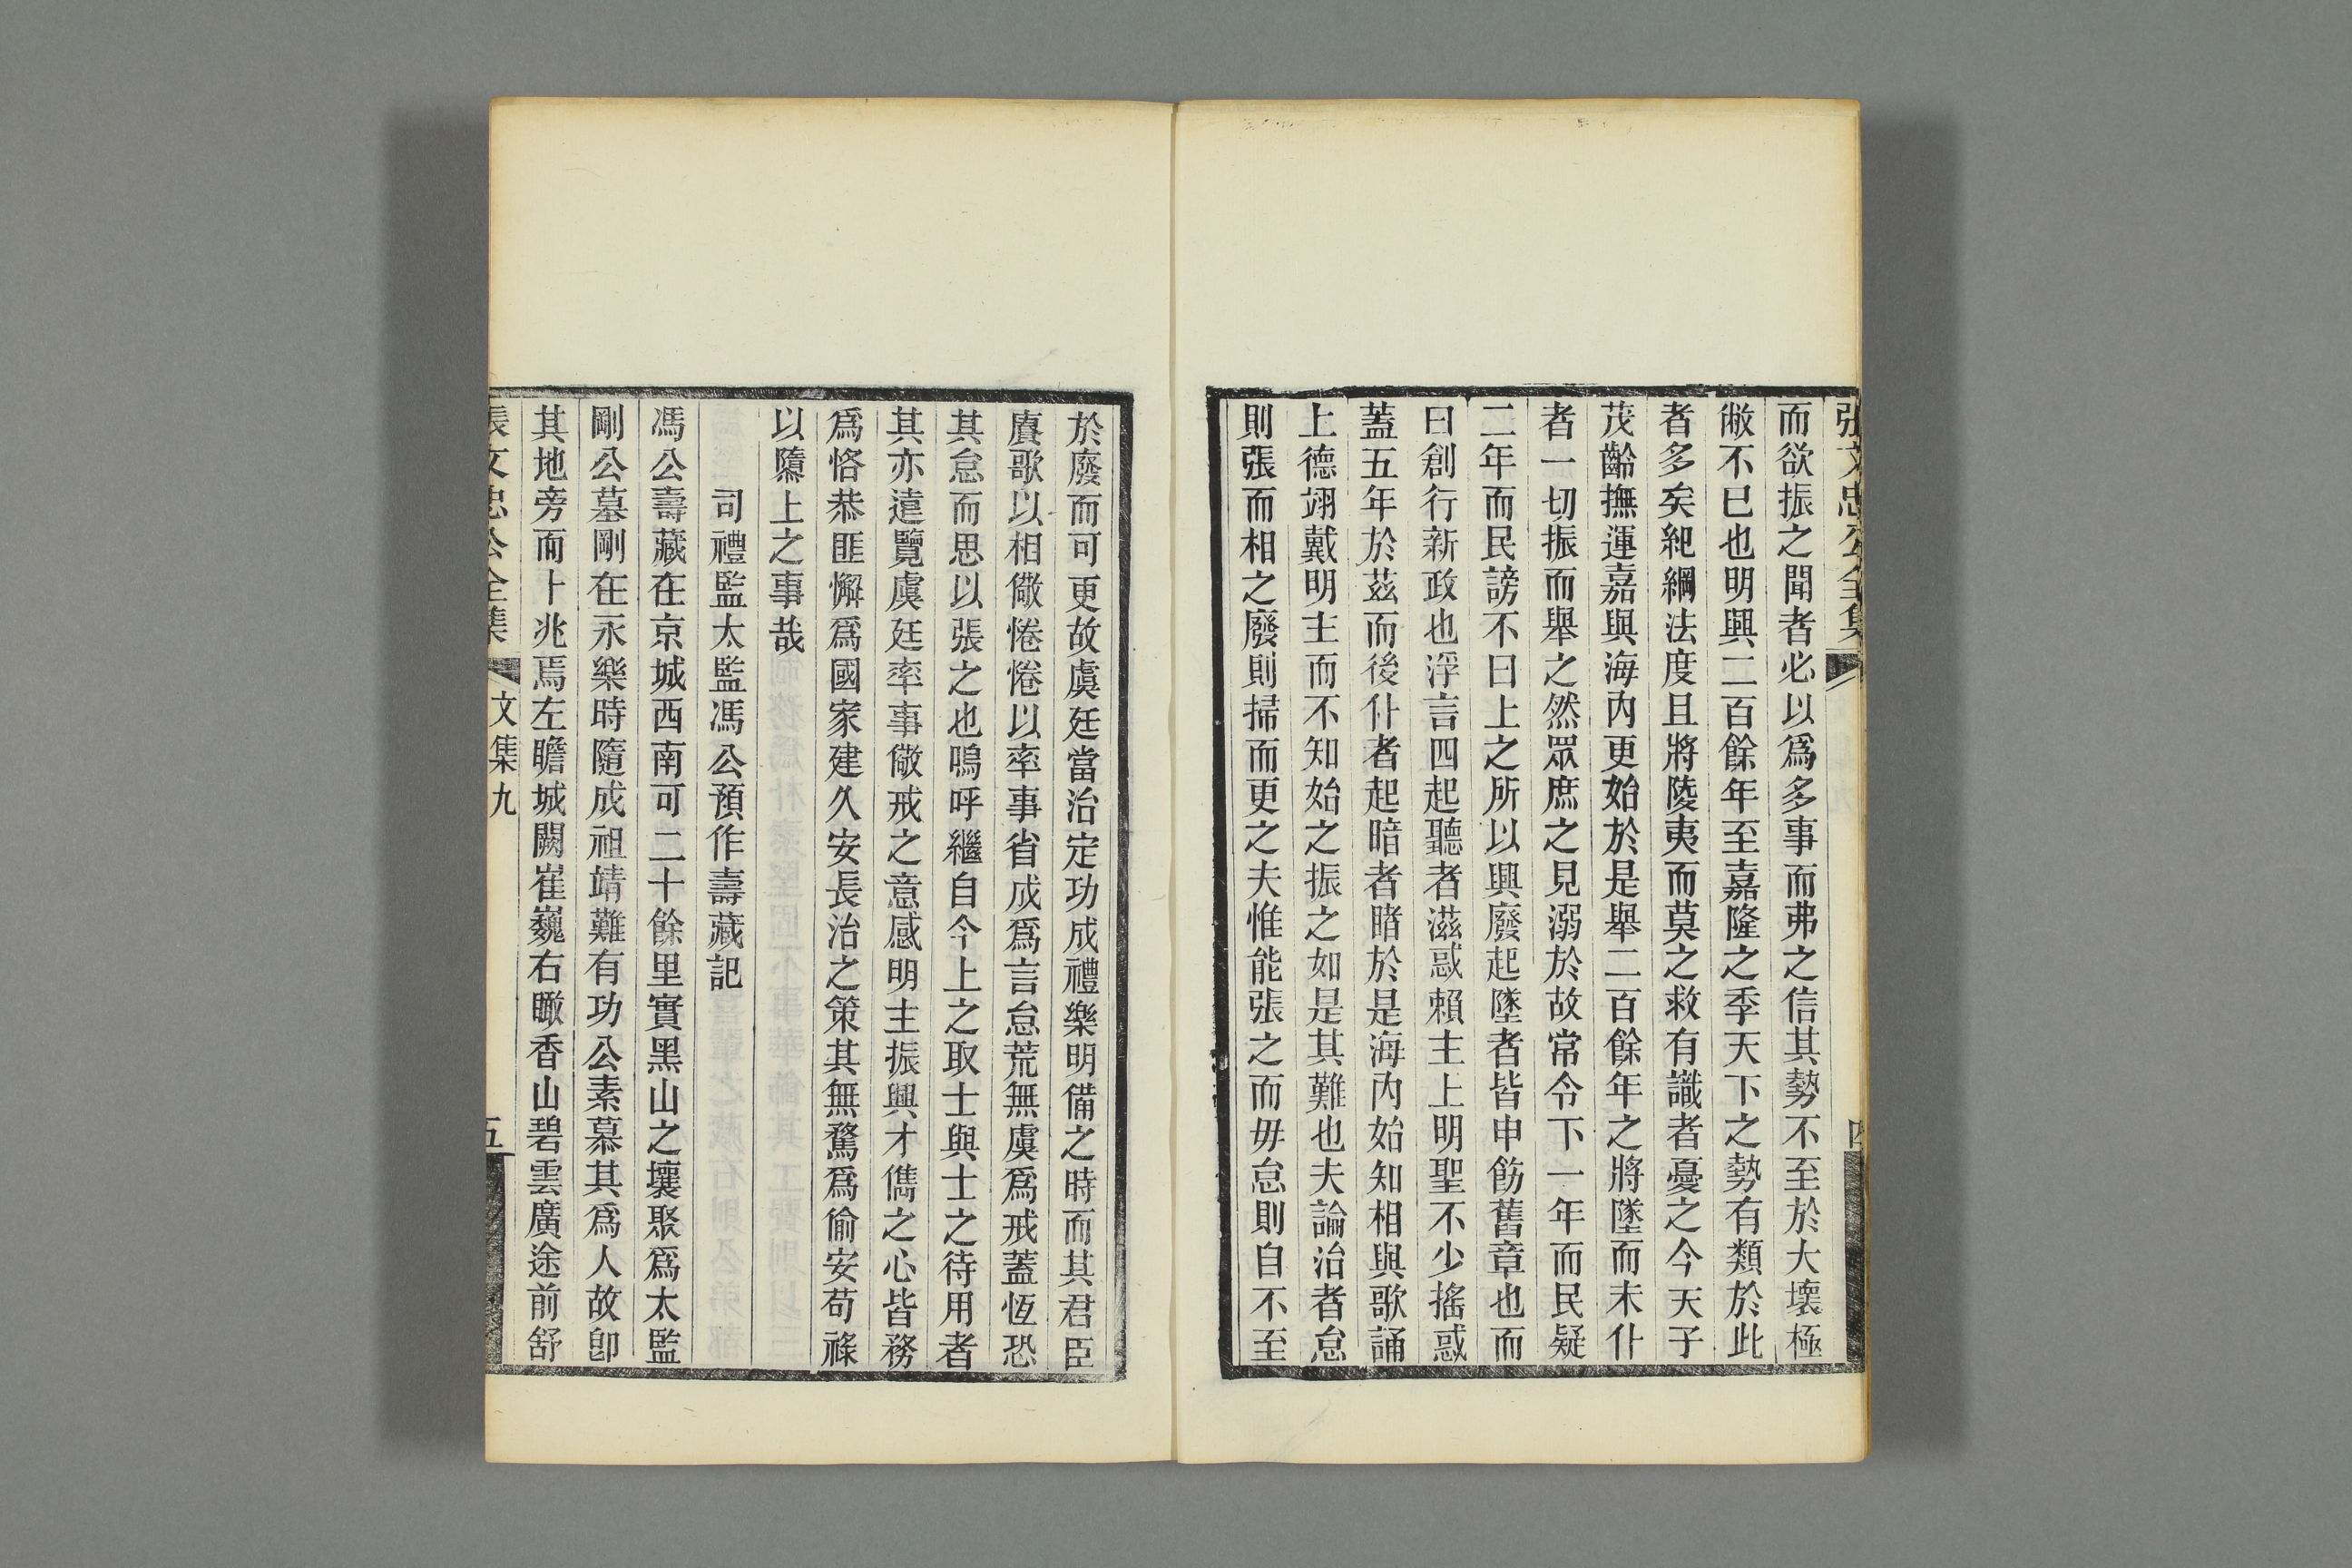 張文忠公全集
四
而欲振之聞者必以爲多事而弗之信其勢不至於大壞極
敝不已也明興二百餘年至嘉隆之季天下之勢有類於此
者多矣紀綱法度且將陵夷而莫之救有識者憂之今天子
茂齡撫運嘉與海內更始於是舉二百餘年之將墜而未仆
者一切振而舉之然眾庶之見溺於故常令下一年而民疑
二年而民謗不曰上之所以興廢起墜者皆申飭舊章也而
曰創行新政也浮言四起聽者滋惑賴主上明聖不少搖惑
蓋五年於茲而後仆者起暗者睹於是海內始知相與歌誦
上德翊戴明主而不知始之振之如是其難也夫論治者怠
則張而相之廢則掃而更之夫惟能張之而毋怠則自不至
於廢而可更故虞廷當治定功成禮樂明備之時而其君臣
賡歌以相儆惓惓以率事省成爲言怠荒無虞爲戒蓋恆恐
其怠而思以張之也嗚呼繼自今上之取士與士之待用者
其亦遠覽虞廷率事儆戒之意感明主振興才儁之心皆務
爲恪恭匪懈爲國家建久安長治之策其無騖爲偷安苟祿
以隳上之事哉
司禮監太監馮公預作壽藏記
馮公壽藏在京城西南可二十餘里實黑山之壤聚爲太監
剛公墓剛在永樂時隨成祖靖難有功公素慕其爲人故卽
其地旁而卜兆焉左瞻城闕崔巍右瞰香山碧雲廣途前舒
張文忠公全集
文集九
五